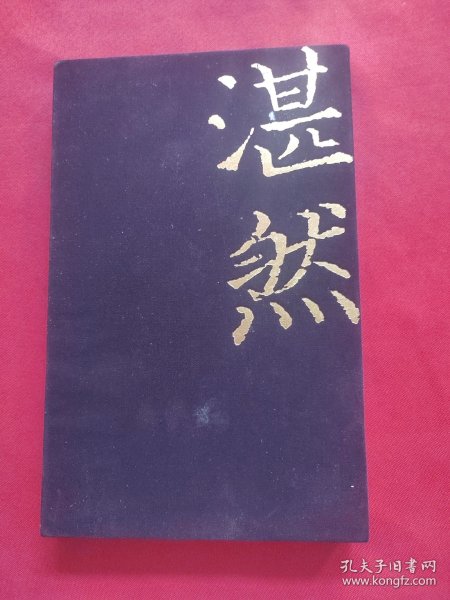 湛然
孔夫子旧书网
www.kongfz.com